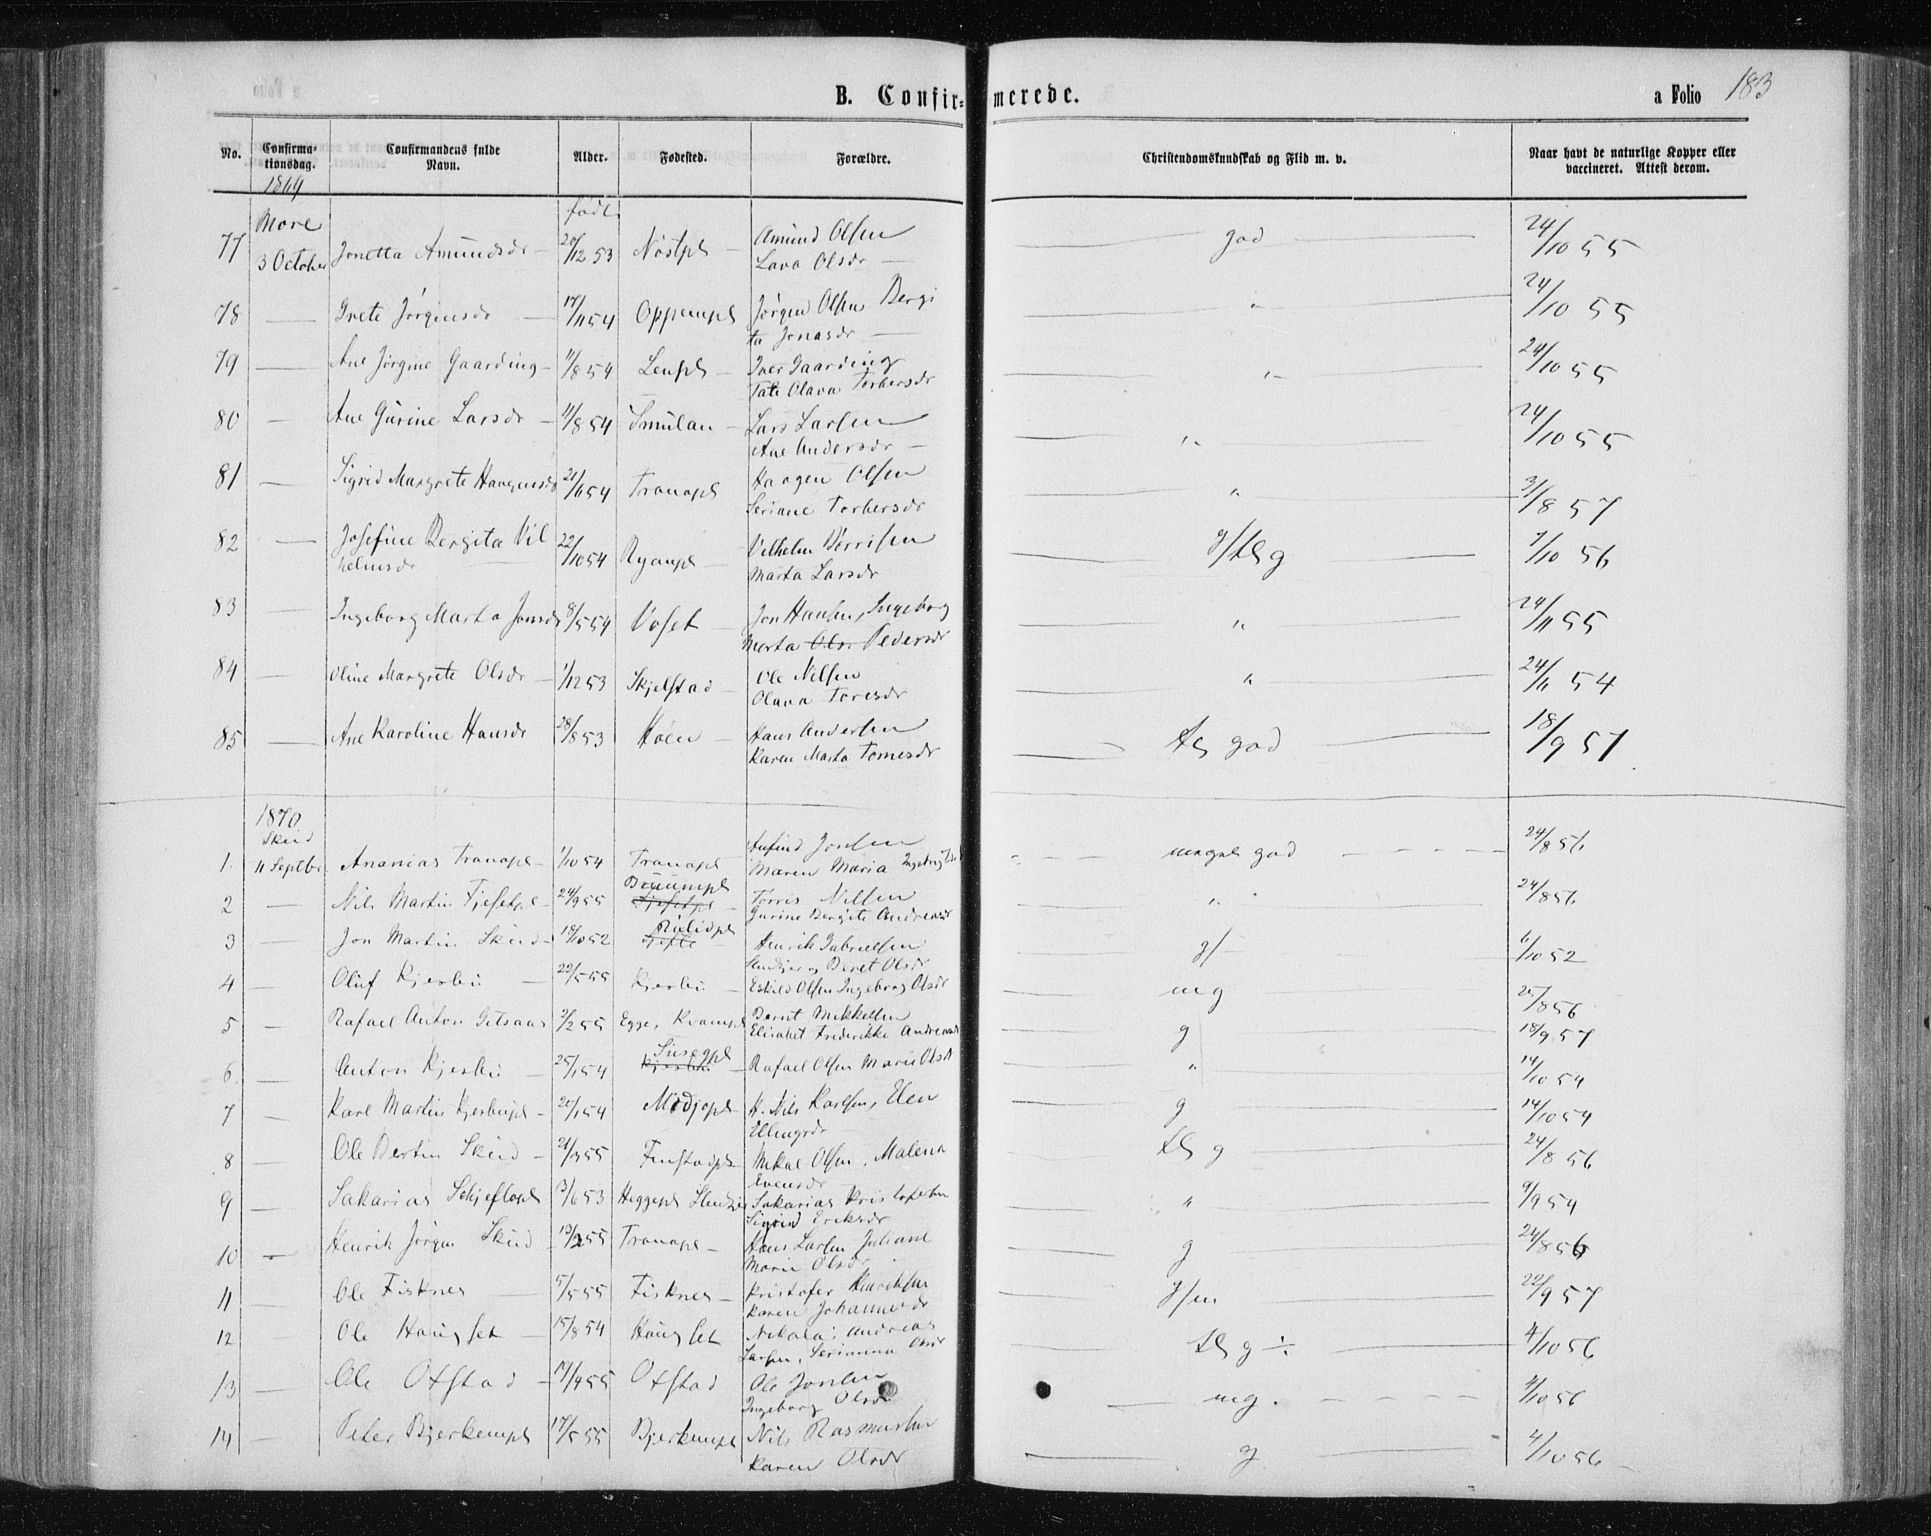 B. Confir-merede.
a Folio 183
No.
Confirma-tionsdag.
Confirmandens fulde Navn.
Alder.
Fødested.
Forældre.
Christendomskundskab og Flid m. v.
Naar havt de naturlige Kopper eller vaccineret. Attest derom.
1869
født
77 More 3 October Jonetta Amundsdr 20/12 53 Nøstpl Amund Olsen god 24/10 55
Lava Olsdr
78 Grete Jørgensdr 17/11 54 Oppempl Jørgen Olsen Bergi " 24/10 55
ta Jonasdr
79 Ane Jørgine Gaarding 11/8 54 Lenpl Iver Gaarding " 24/10 55
Olava Torbersdr
80 Ane Gurine Larsdr 11/8 54 Smulan Lars Larsen " 24/10 55
Ane Andersdr
81 Sigrid Margrete Haagensdr 21/6 54 Tranapl Haagen Olsen " 3/8 57
Seriane Torbersdr
82 Josefine Bergita Vil 22/10 54 Ryanpl Vilhelm Børrisen g/tlg 7/10 56
helmsdr Marta Larsdr
83 Ingeborg Marta Jonsdr 8/5 54 Voset Jon Hansen, Ingeborg " 24/11 55
Marta Olsr Pedersdr
84 Oline Margrete Olsdr 1/12 53 Skjelstad Ole Nilsen " 24/11 54
Olava Toresdr
85 Ane Karoline Hansdr 28/8 53 Høen Hans Andersen tlg god 18/9 57
Karen Marta Tomesdr
1870
Skeid
1. 11 Septbr Ananias Tranapl 1/10 54 Tranapl Anfind Jonsen meget god 24/8 56
Maren Maria
2 Nils Martin Fjesetpl 24/9 55 Fjesetpl Tørris Nilsen " 24/8 56
Gurine Bergite Andreasdr
3 Jon Martin Skeid 18/10 52 Henrik Gabrielsen g/- 6/10 52
Beret Olsdr
4 Oluf Kjerbu 22/5 55 Kjerbu Eskild Olsen Ingeborg Olsdr mg 25/8 56
5 Rafael Anton 2/2 55 Egge, Kvampl Bernt Mikkelsen g 18/9 57
Elisabet Frederikke Andreasdr
6. Anton Kjerbu 25/1 54 Kjerbu Rafael Olsen Marie Olsdr " 14/10 54
7 Karl Martin Kjerbupl 20/1 54 Nils Karlsen, Elen g 14/10 54
Ellingsdr
8 Ole Bertin Skeid 21/3 55 Finstadpl Mikal Olsen, Malena tlg g 24/8 56
Evensdr
9 Sakarias Skjeftopl 13/6 53 Heggepl Sakarias Kristofersen " 9/9 54
Sigrid Eriksdr
10 Henrik Jørgen Skeid 13/2 55 Tranapl Hans Larsen Juliane g 24/8 56
Marie Olsdr
11 Ole Fisknes 5/5 55 Fisknes Kristofer Henriksen g/m 22/9 57
Karen Johannesdr
12 Ole Haugset 15/8 54 Haugset Nikolai Andreas tlg g ÷ 4/10 56
Larsen, Serianna Olsdr
13 Ole Oxstad 17/4 55 Oxstad Ole Jonsen mg. 4/10 56
Ingeborg Olsdr
14 Peter Bjerkempl 17/5 55 Bjerkempl Nils Rasmussen g 4/10 56
Karen Olsdr